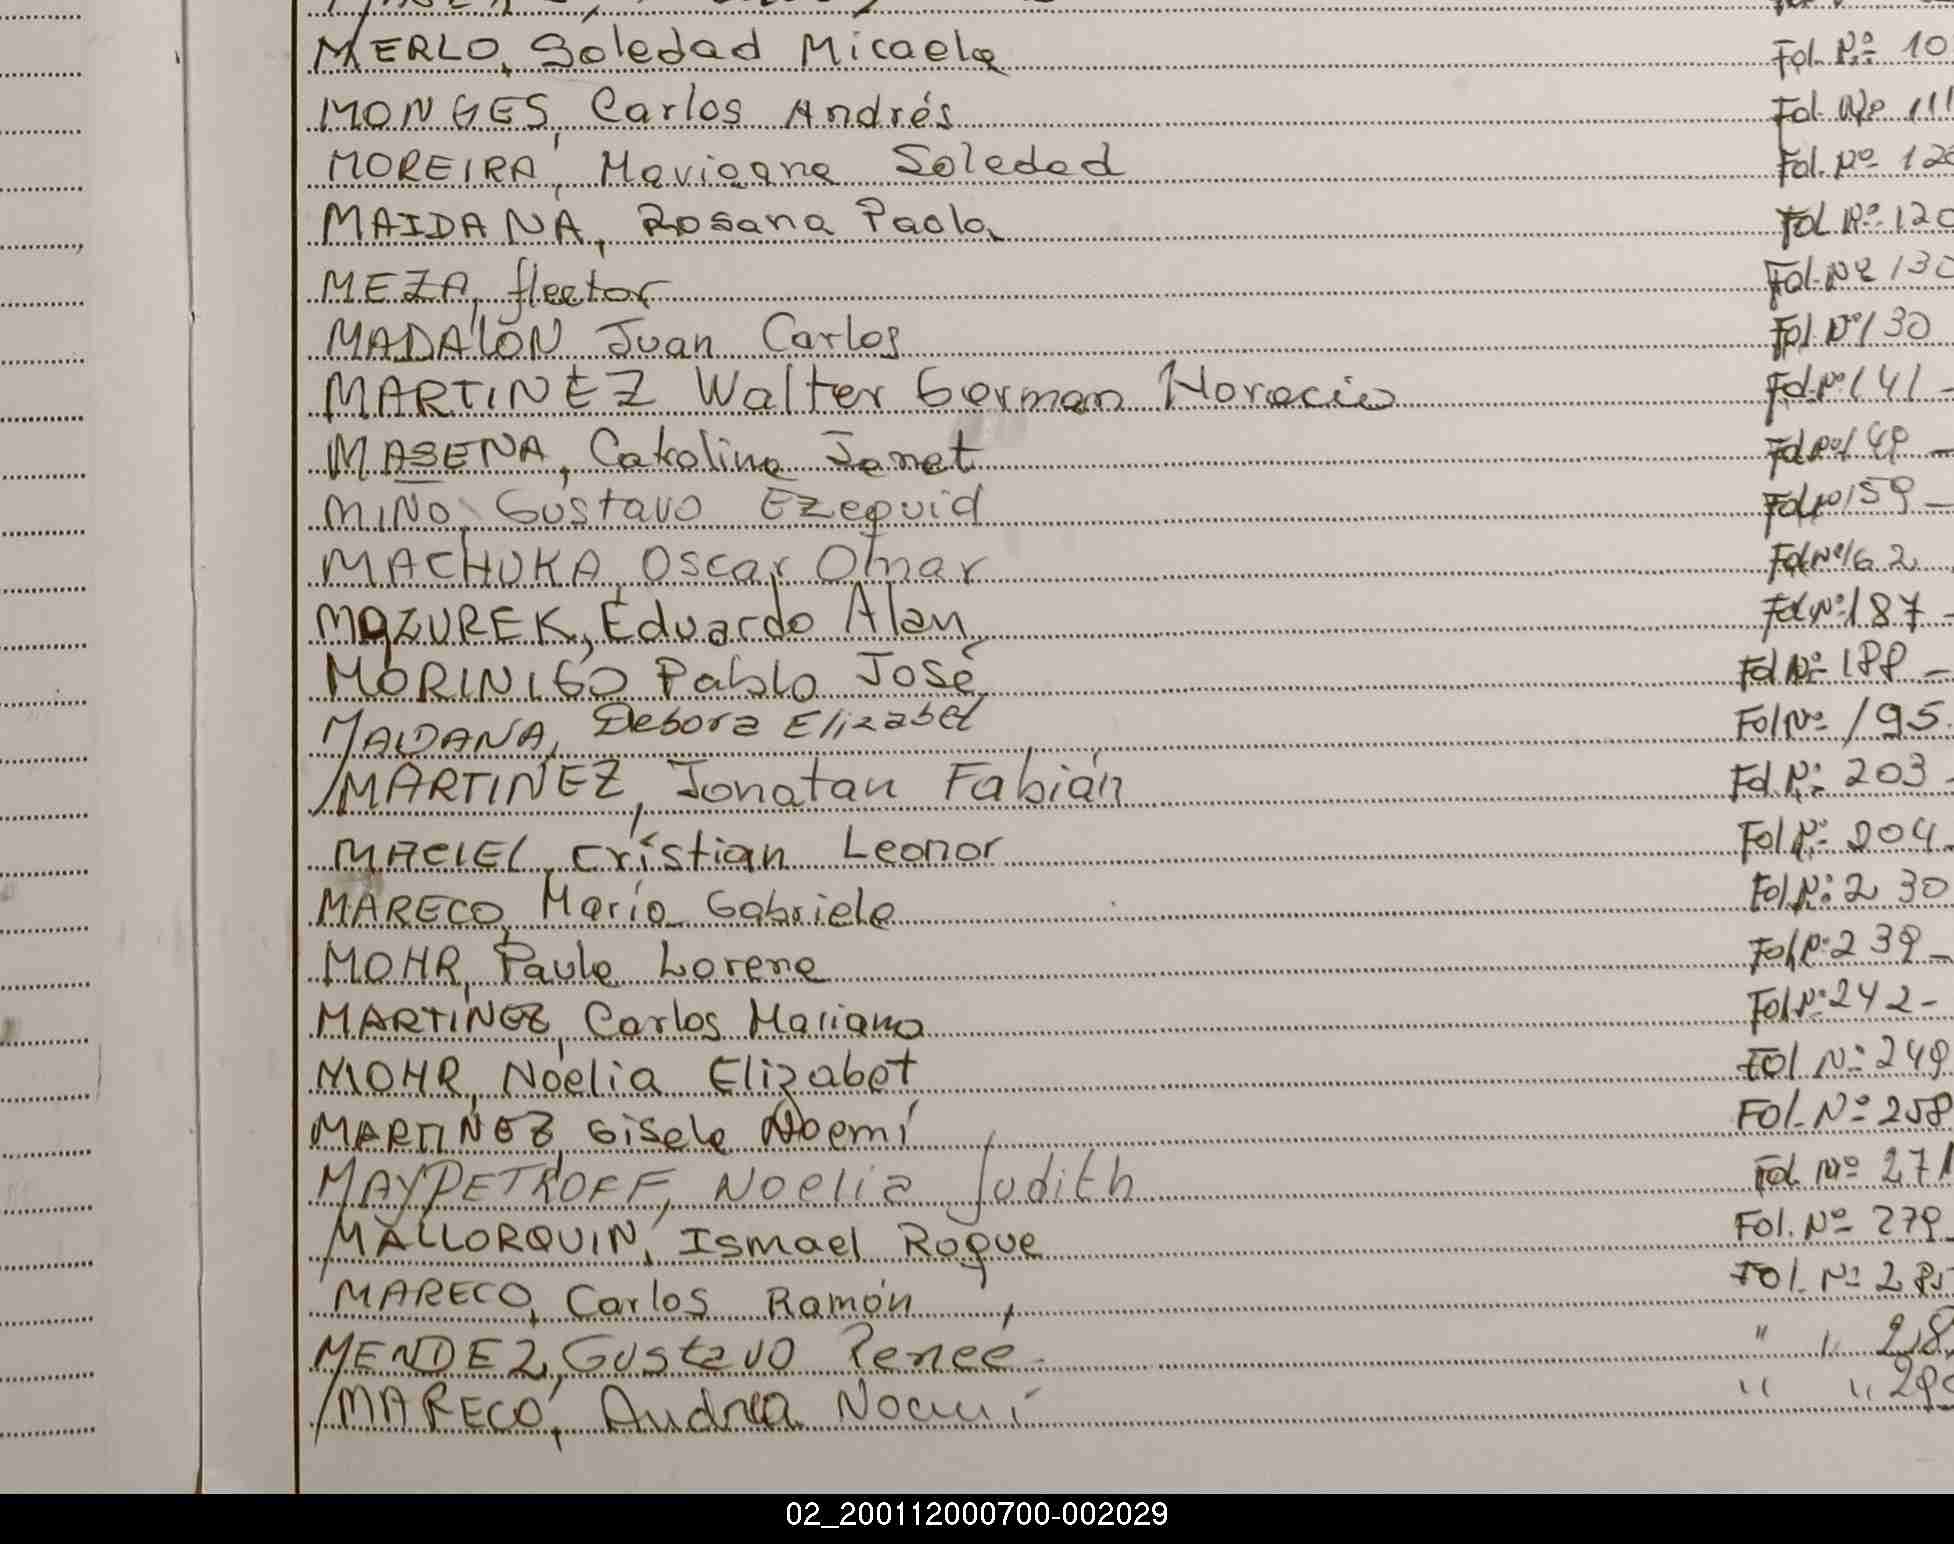 MERLO, Soledad Micaela Fol. Nº 10
MONGES, Carlos Andrés Fol. Nº 111
MOREIRA, Mariana Soledad Fol. Nº 120
MAIDANA, Rosana Paola Fol Nº 120
MEZA, Hector Fol. Nº 130
MADALON Juan Carlos Fol. Nº 130
MARTINEZ Walter German Horacio Fol. Nº 141 -
MASENA, Catalina Janet Fol Nº 149 -
MIÑO, Gustavo Ezequiel Fol Nº 159 -
MACHUKA, Oscar Omar Fol Nº 162
MAZUREK, Eduardo Alan Fol Nº 187 -
MORINIGO Pablo José Fol Nº 188 -
MAIDANA, Debora Elizabet Fol Nº 195
MARTINEZ, Jonatan Fabián Fol Nº 203 -
MACIEL, Cristian Leonor Fol Nº 204 -
MARECO, María Gabriela Fol. Nº 230
MOHR, Paula Lorena Fol Nº 239 -
MARTINEZ, Carlos Mariano Fol Nº 242 -
MOHR, Noelia Elizabet Fol Nº 249
MARTINEZ, Gisele Noemí Fol. Nº 258
MAYPETROFF, Noelia Judith Fol. Nº 271
MALLORQUIN, Ismael Roque Fol. Nº 279
MARECO, Carlos Ramón Fol. Nº 285
MENDEZ, Gustavo Reneé " " 28
MARECO, Andrea Noemí " " 29
02_200112000700-002029